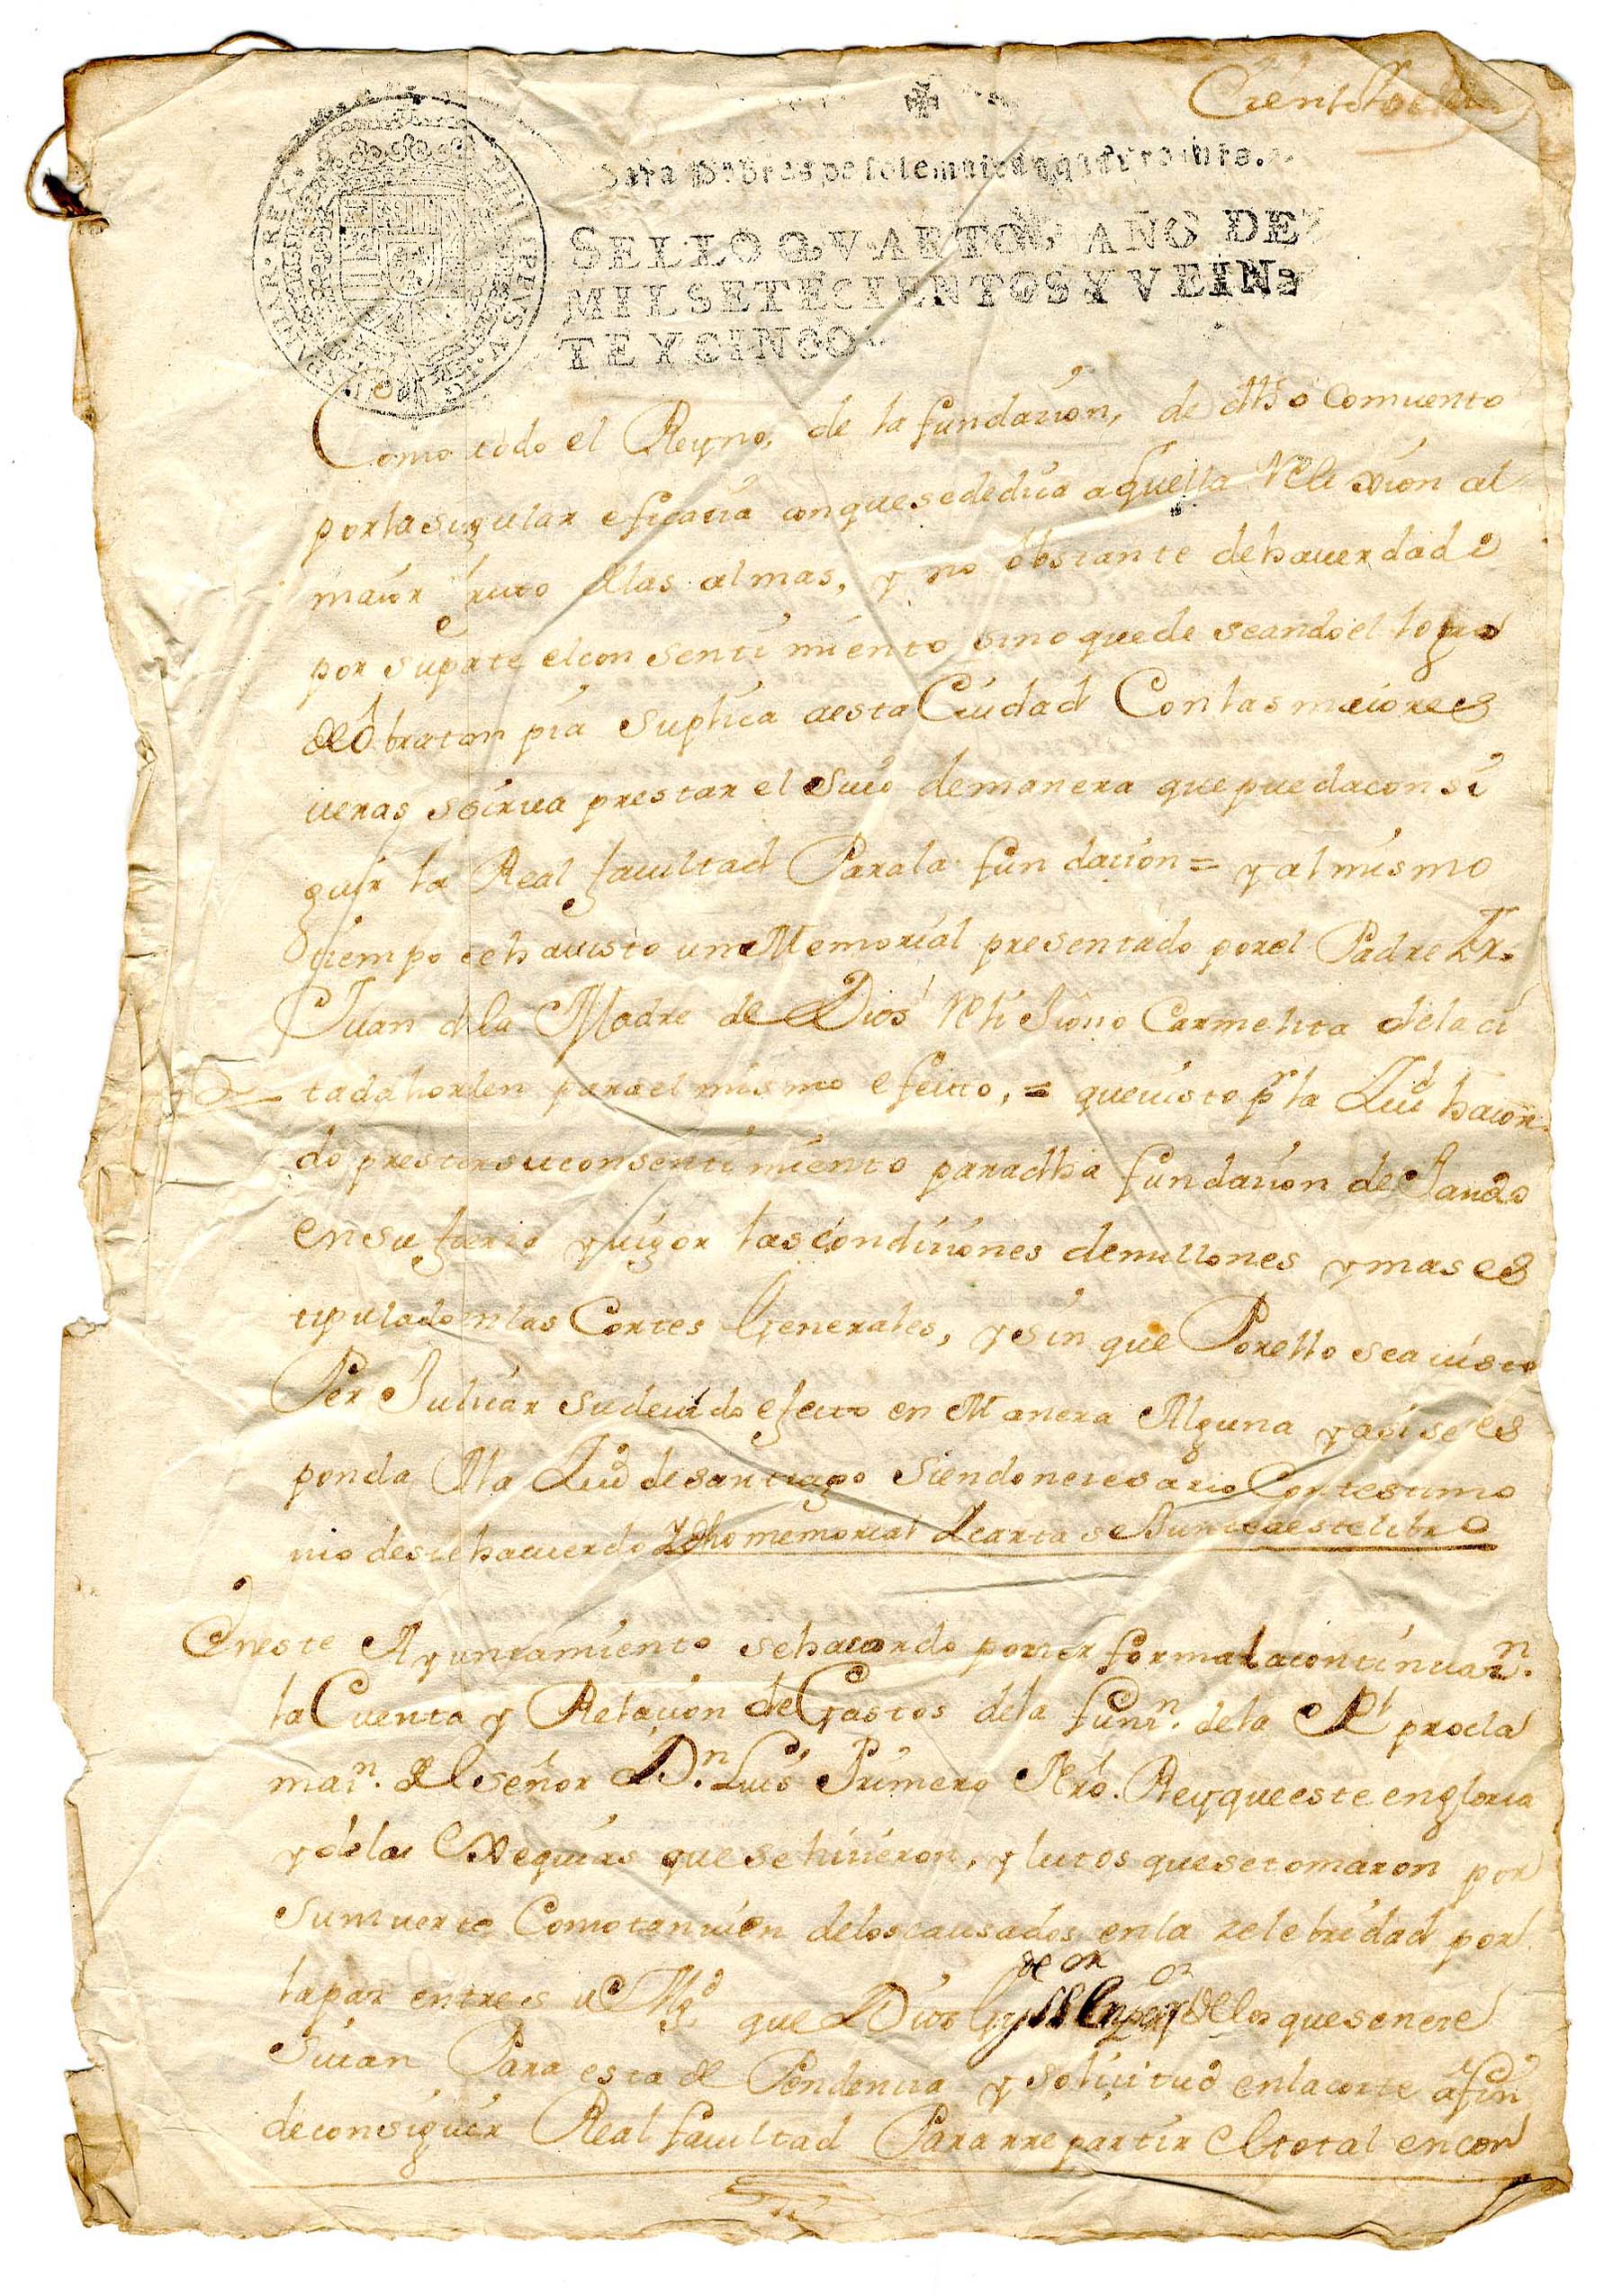 Ciento
Para Pobres de solemnidad quatro mrs.
SELLO QVARTO, AÑO DE
MIL SETECIENTOS Y VEIN-
TE Y CINCO.
PHILIPPVS V
HISPANIAR REX
Como todo el Reyno, de la fundazion, de dhõ Comuento
por la singular eficacia con que se dedica a quella Relixion al
maior fruto de las almas, y no obstante de hauer dado
por su parte el con sentimiento sino que de seando el logro
de obra tan pia suplica aesta Ciudad Con las maiores
ueras se sirua prestar el suio de manera que pueda consi
guir la Real facultad Para la fundacion = y al mismo
tiempo se ha uisto un Memorial presentado por el Padre Fr.
Juan de la Madre de Dios Relijioso Carmelita de la ci
tada horden para el mismo efecto, = que uisto pr la Ziud hacor
do prestar su consentimiento para dha fundazion dejando
en su fuerza y uigor las condiziones de millones y mas es
tipulado en las Cortes Generales, y sin que Por ello sea uisto
Per Juiziar su deuido efecto en Manera Alguna y asi se res
ponda A la Ziud de santiago siendo necesario Con testimo
nio deste hacuerdo y dho memorial y carta se Junte a este libro
En este Ayuntamiento se hacordo poner formal a continuazn.
la Cuenta y Relazion de Gastos de la funzn. de la Rl procla
mazn. del señor Dn. Luis Primero Nrõ. Rey que este en gloria
y de las Exequias que se hizieron, y lutos que se tomaron por
su muerte Como tanuien de los causados en la zelebridad por
la paz entre su Mgd. que Dios de los que se nece
sitan Para esta de Pendencia y solicitud en la corte a fin
de conseguir Real facultad Para rre partir el total en con